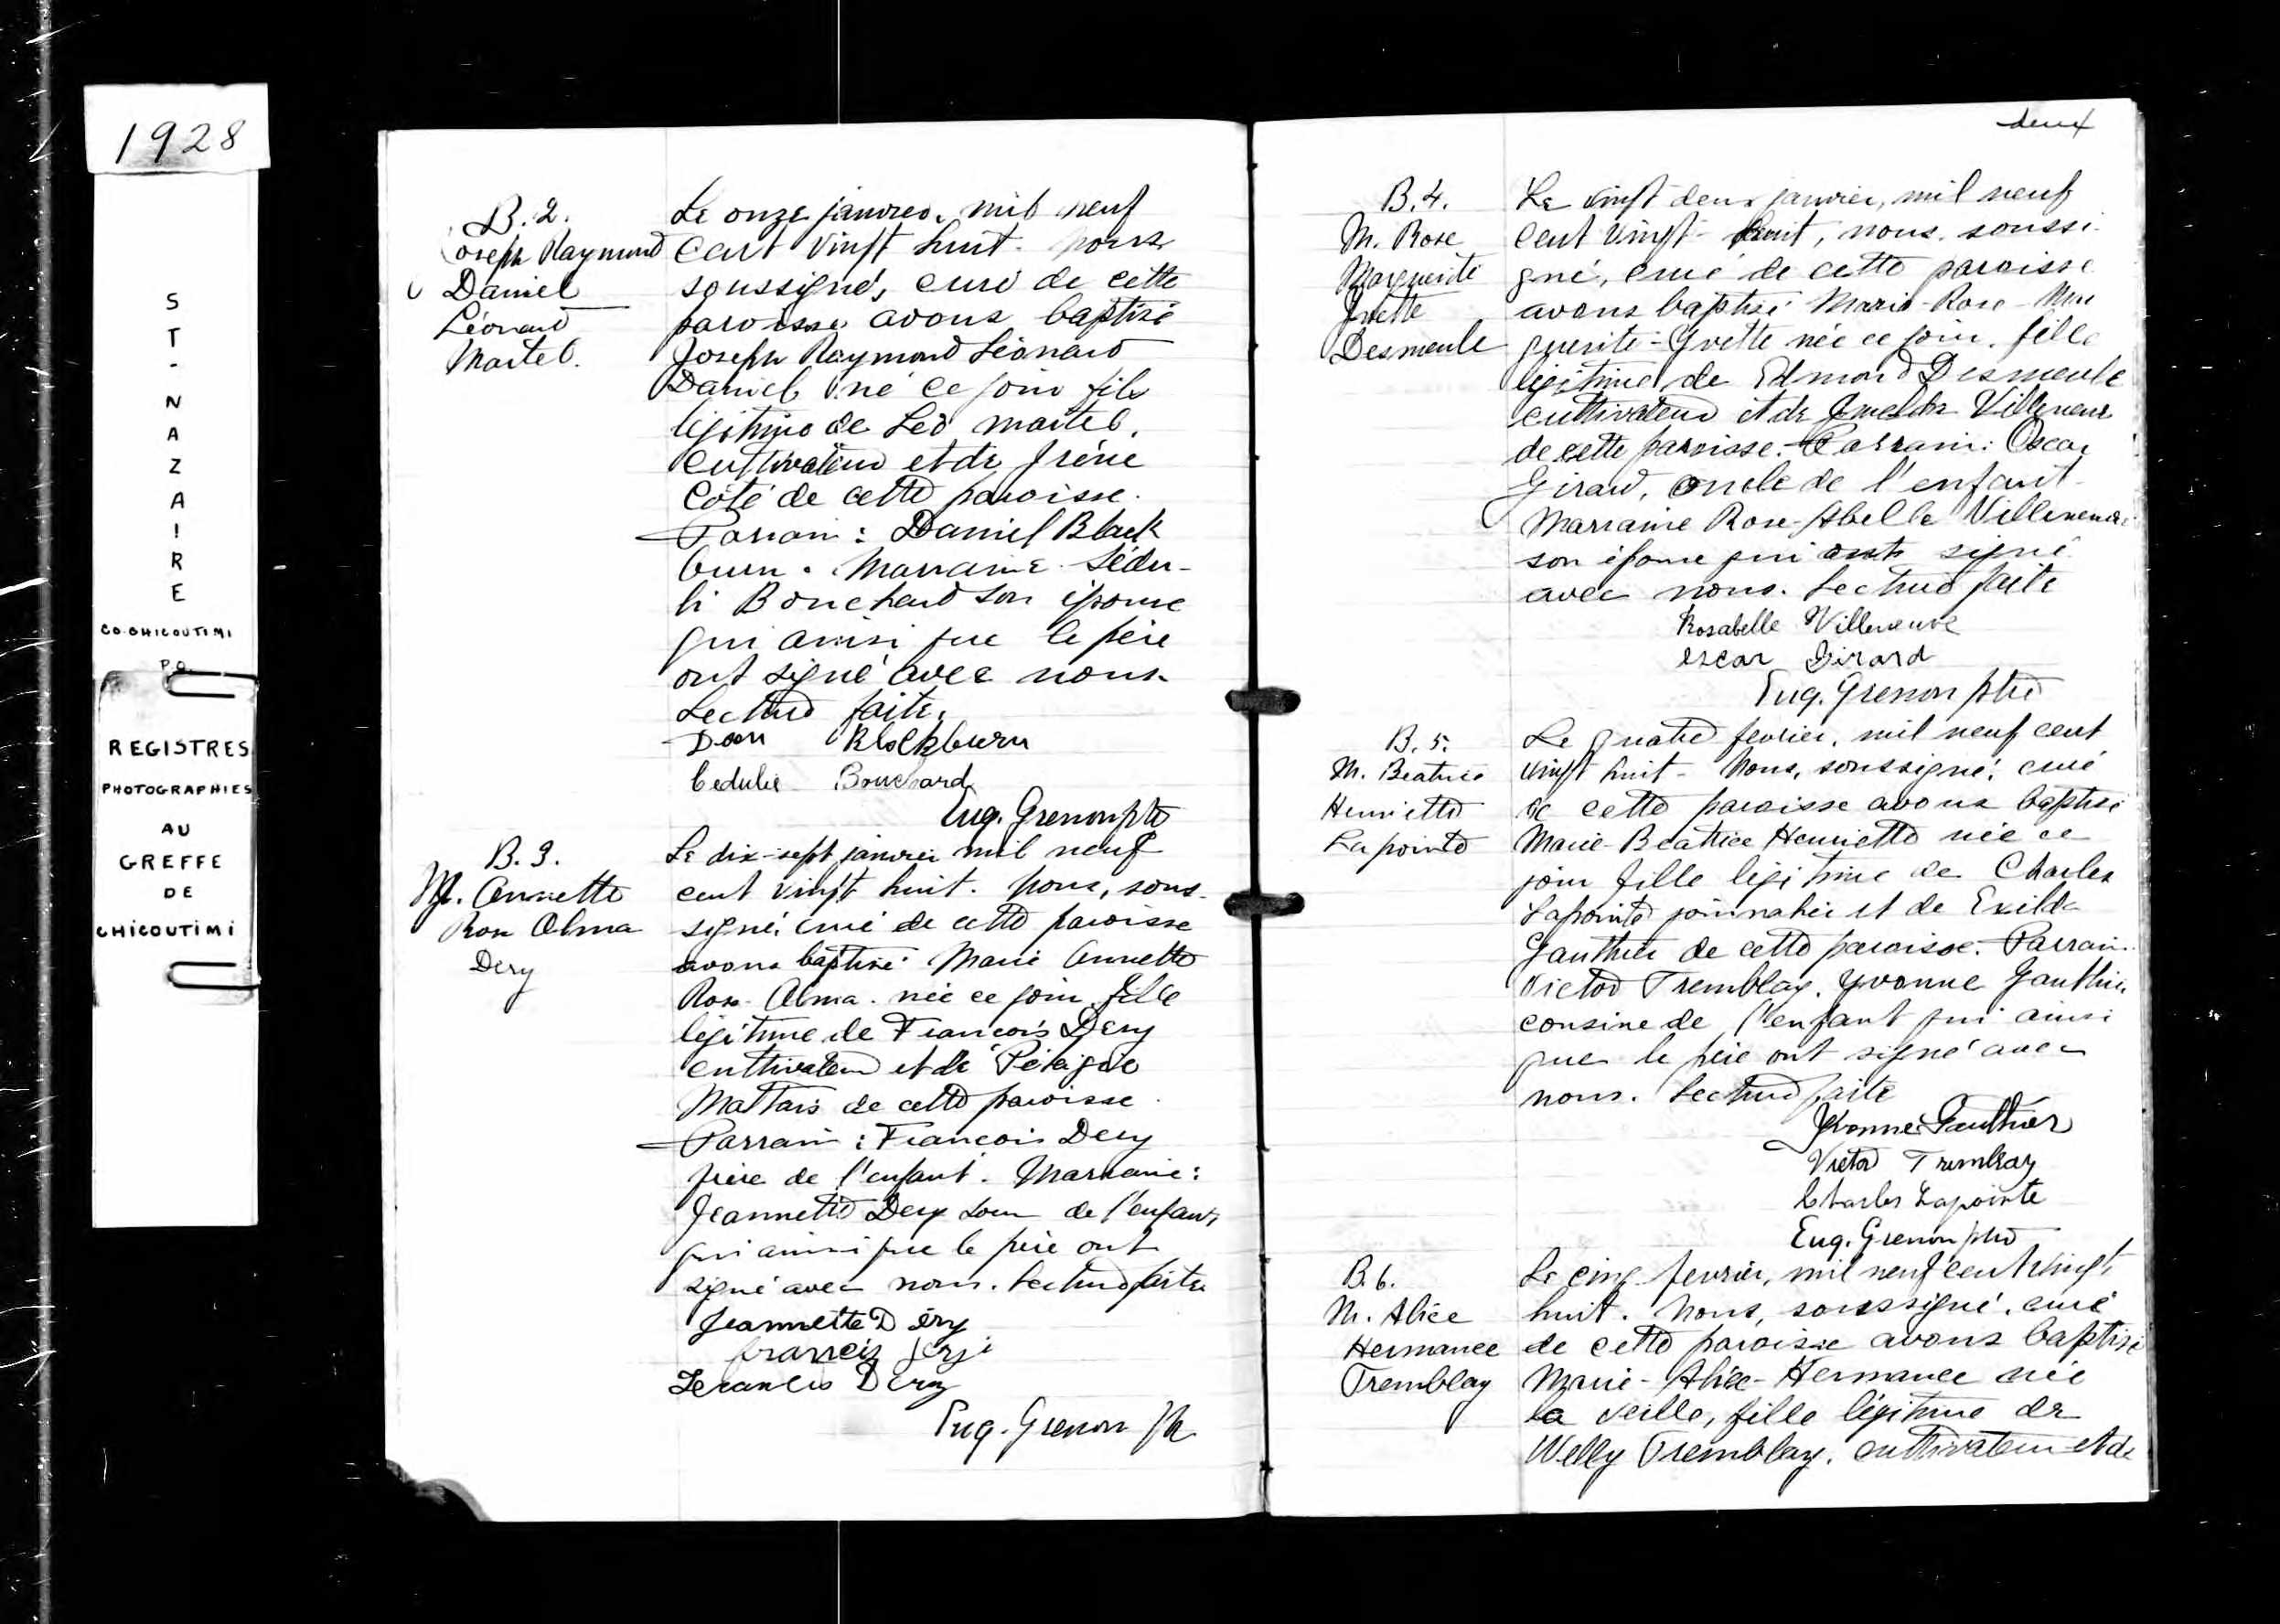 1928
ST-NAZAIRE
CO. CHICOUTIMI
P.Q.
REGISTRES
PHOTOGRAPHIES
AU
GREFFE
DE
CHICOUTIMI
B.2.
Joseph Raymond
Daniel
Léonard
Martel.
Le onze janvier, mil neuf
cent vingt huit. nous
soussigné, curé de cette
paroisse avons baptisé
Joseph Raymond Léonard
Daniel né ce jour fils
légitime de Léo Martel,
cultivateur et de Irène
Côté de cette paroisse.
Parrain : Daniel Black
burn. Marraine Sédu-
li Bouchard son épouse
qui ainsi que le père
ont signé avec nous.
Lecture faite.
Dan Blackburn
Cedulie Bouchard
Eug. Grenon ptre
B.3.
M. Annette
Rose Alma
Dery
Le dix-sept janvier mil neuf
cent vingt huit. Nous, sous-
signé, curé de cette paroisse
avons baptisé Marie Annette
Rose-Alma. née ce jour, fille
légitime de François Dery
cultivateur et de Pélagie
Mattais de cette paroisse.
Parrain : François Dery
frère de l'enfant. Marraine :
Jeannette Dery soeur de l'enfant
qui ainsi que le père ont
signé avec nous. Lecture faite
Jeannette Déry
francis
Dery
Eug. Grenon ptr
deux
B.4.
M. Rose
Marguerite
Yvette
Desmeule
Le vingt deux janvier, mil neuf
cent vingt-huit, nous. soussi-
gné, curé de cette paroisse
avons baptisé Marie-Rose-Mar
guerite-Yvette née ce jour. fille
légitime de Edmond Desmeule
cultivateur et de Imelda Villeneuve
de cette paroisse. Parrain : Oscar
Girard, oncle de l'enfant.
Marraine Rose-Abelle Villeneuve
son épouse qui ont signé
avec nous. Lecture faite
Rosabelle Villeneuve
Oscar Girard
Eug. Grenon ptre
B.5.
M. Beatrice
Henriette
Lapointe
Le quatre fevrier, mil neuf cent
vingt huit - Nous, soussigné, curé
de cette paroisse avons baptisé
Marie-Beatrice Henriette née ce
jour fille légitime de Charles
Lapointe journalier et de Exilda
Gauthier de cette paroisse. Parrain
Victor Tremblay. Yvonne Gauthier,
cousine de l'enfant qui ainsi
que le père ont signé avec
nous. Lecture faite
Yvonne Gauthier
Victor Tremblay
Charles Lapointe
Eug. Grenon ptre
B.6.
M. Alice
Hermance
Tremblay
Le cinq fevrier, mil neuf cent vingt
huit. Nous, soussigné, curé
de cette paroisse avons baptisé
Marie-Alice-Hermance née
la veille, fille légitime de
Welly Tremblay. cultivateur et de